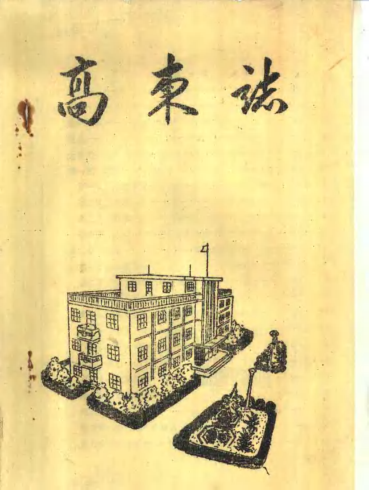 高東誌